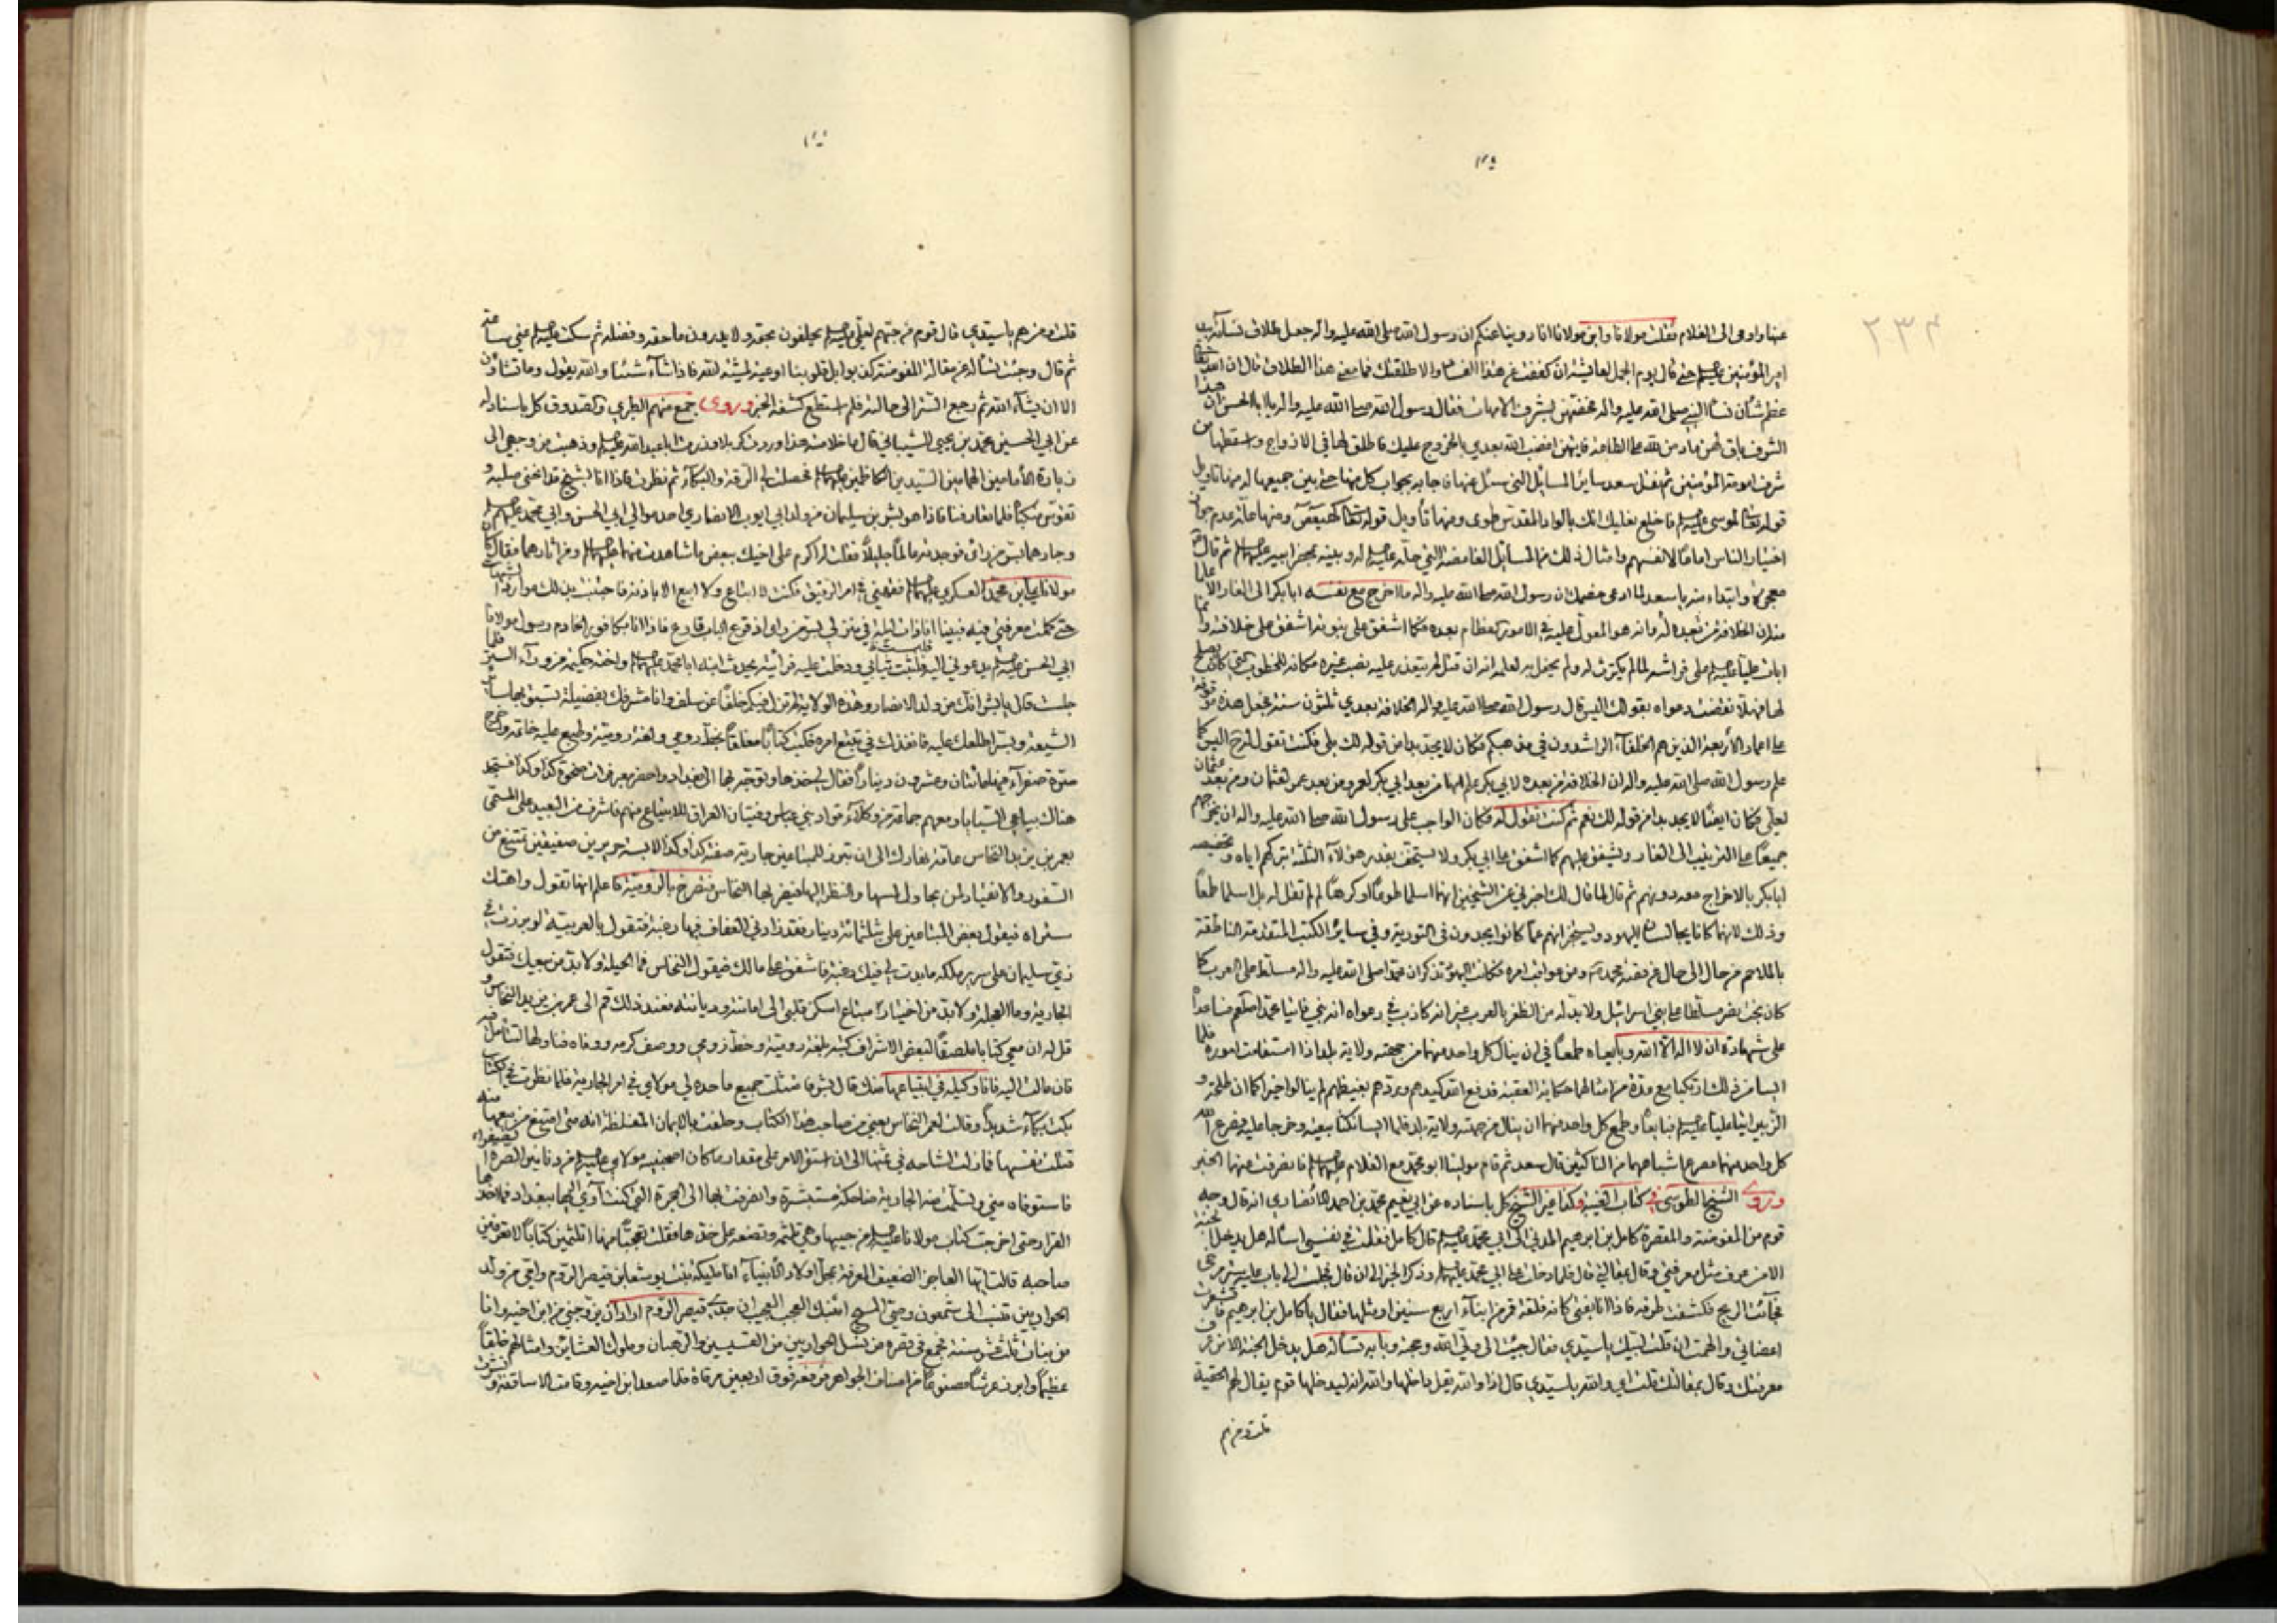 ٢٣٤
عنها واومى الى الغلام فقلت مولانا وابن مولانا انا روينا عنكم ان رسول الله صلى الله عليه واله جعل طلاق نسائه بيد
امير المؤمنين حتى قال يوم الجمل لعايشة ان كففت عن هذا والا طلقتك فما معنى هذا الطلاق قال ان الله تعالى
عظم شأن نساء النبي صلى الله عليه واله فخصهن بشرف الامهات فقال رسول الله صلى الله عليه واله يا ابا الحسن ان هذا
الشرف باق لهن ما دمن لله على الطاعة فايتهن بعدي بالخروج عليك فاطلق لها في الازواج واسقطها من
شرف امومة المؤمنين ثم نقل سعد ساير المسايل التي سئل عنها فاجابه بجواب كل منها منها تاويل
قوله تعالى لموسى فاخلع نعليك انك بالواد المقدس طوى ومنها تأويل قوله تعالى كهيعص ومنها علة عدم جواز
اختيار الناس اماما لانفسهم وامثال ذلك من المسائل الغامضة التي ثم قال
وابتداء منه يا سعد لما ادعى خصمك ان رسول الله صلى الله عليه واله ما اخرج مع نفسه ابا بكر الى الغار الا علما
منه ان الخلافة من بعده له وانه هو المعول عليه في الامور بعده فكما اشفق على نبوته اشفق على خلافته وانما
ابات عليا على فراشه لما لم يكترث له ولم يحفل به لعلمه انه ان قتل لم يتعذر عليه نصب غيره مكانه للخطوب التي كان يصلح
لها فهلا نقضت دعواه بقولك اليس قال رسول الله صلى الله عليه واله الخلافة بعدي ثلثون سنة فجعل هذه موقوفة
على اعمار الاربعة الذين هم الخلفاء الراشدون في مذهبكم فكان لا يجد بدا من قوله لك بلى فكنت تقول له ح اليس كما
علم رسول الله صلى الله عليه واله ان الخلافة من بعده لابي بكر علم انها من بعد ابي بكر لعمر ومن بعد عمر لعثمان ومن بعد عثمان
لعلي فكان ايضا لا يجد بدا من قوله لك نعم ثم كنت تقول له فكان الواجب على رسول الله صلى الله عليه واله ان يخرجهم
جميعا على الترتيب الى الغار ويشفق عليهم كما اشفق على ابي بكر ولا يستخف بقدر هؤلاء الثلثة بتركهم اياه وتخصيصه
ابا بكر بالاخراج معه دونهم ثم قال لما قال لك اخبرني عن الشيخين انهما اسلما طوعا او كرها لم لم تقل له بل اسلما طمعا
وذلك لانهما كانا يجالسان اليهود ويستخبرانهم عما كانوا يجدون في التورية وفي ساير الكتب المتقدمة الناطقة
بالملاحم من حال الى حال من قصة محمد ومن عواقب امره فكانت اليهود تذكر ان محمدا صلى الله عليه واله مسلط على العرب كما
كان بخت نصر مسلطا على بني اسرائيل ولا بد له من الظفر بالعرب غير انه كاذب في دعواه انه نبي فاتيا محمدا صلعم فساعداه
على شهادة ان لا اله الا الله وبايعاه طمعا في ان ينال كل واحد منهما من جهته ولاية بلد اذا استقامت اموره فلما
ايسا من ذلك مع عدة من امثالهما العقبة فدفع الله كيدهم وردهم بغيظهم لم ينالوا خيرا كما ان طلحة و
الزبير اتيا عليا فبايعاه وطمع كل واحد منهما ان ينال من جهته ولاية بلد فلما ايسا نكثا بيعته وخرجا عليه فصرع الله
كل واحد منهما مصرع اشباههما من الناكثين قال سعد ثم قام مولينا ابو محمد مع الغلام فانصرفت منهما الخبر
وروى الشيخ الطوسي في كتاب الغيبة وكذا غير الشيخ كل باسناده عن ابي نعيم محمد بن احمد الانصاري انه قال وجه
قوم من المفوضة والمقصرة كامل بن ابراهيم المدني الى ابي محمد قال كامل فقلت في نفسي اسأله هل يدخل الجنة
الا من عرف مثل معرفتي وقال بمقالتي قال فلما دخلت على ابي محمد وذكر الخبر الى ان قال فجلست الى باب عليه ستر مرخى
فجائت الريح فكشفت طرفه فاذا انا بفتى كانه فلقة قمر من ابناء اربع سنين او مثلها فقال يا كامل بن ابراهيم فاقشعرت
اعضائي والهمت ان قلت لبيك يا سيدي فقال جئت الى ولي الله وحجته وبابه تسأله هل يدخل الجنة الا من عرف
معرفتك وقال بمقالتك قلت اي والله يا سيدي قال اذا والله يقل داخلها والله انه ليدخلها قوم يقال لهم الحقية
قلت ومن هم
قلت ومن هم يا سيدي قال قوم من حبهم لعلي يحلفون بحقه ولا يدرون ما حقه وفضله ثم سكت عني ساعة
ثم قال وجئت تسأله عن مقالة المفوضة كذبوا بل قلوبنا اوعية لمشية الله فاذا شاء شئنا والله يقول وما تشاؤن
الا ان يشاء الله ثم رجع الستر الى حالته فلم استطع كشفه الخبر وروى جمع منهم الطبري والصدوق كل باسناده
عن ابي الحسين محمد بن يحيى الشيباني قال ما خلاصته هذا وردت كربلا وزرت ابا عبد الله وذهبت من وجهي الى
زيارة الامامين الهمامين السيدين الكاظمين فحصلت لي الرقة والبكاء ثم نظرت فاذا انا بشيخ قد انحنى صلبه و
تقوس منكباه فلما تعارفنا فاذا هو بشر بن سليمان من ولد ابي ايوب الانصاري احد موالي ابي الحسن وابي محمد
وجارهما بسر من رأى فوجدته عالما جليلا فقلت له اكرم على اخيك ببعض ما شاهدت منهما ومن اثارهما فقال كان
مولانا علي بن محمد العسكري فقهني في امر الرقيق فكنت لا ابتاع ولا ابيع الا باذنه فاجتنبت بذلك موارد الشبهات
حتى كملت معرفتي فيه فبينا انا ذات ليلة في منزلي بسر من رأى اذ قرع الباب قارع فاذا انا بكافور الخادم رسول مولانا
ابي الحسن يدعوني اليه فلبست ثيابي ودخلت عليه فرأيته يحدث ابنه ابا محمد واخته حكيمة من وراء الستر فلما
جلست قال يا بشر انك من ولد الانصار وهذه الولاية لم تزل فيكم خلفا عن سلف وانا مشرفك بفضيلة تسبق بها سائر
الشيعة وبسر اطلعك عليه فانفذك في تتبع امره فكتب كتابا ملفقا بخط رومي ولغة رومية وطبع عليه خاتمه واخرج
صرة صفراء فيها مائتان وعشرون دينارا فقال لي خذها وتوجه بها الى بغداد واحضر معبر فرات ضحوة كذا وكذا فستجد
هناك بياعي السبايا ومعهم جماعة من وكلاء قواد بني عباس وفتيان العراق للابتياع منهم فاشرف من البعيد على المسمى
بعمر بن يزيد النخاس عامة نهارك الى ان تبرز للمبتاعين جارية صفته كذا وكذا لابسة حريرين صفيقين تمتنع من
السفور والانقياد لمن يحاول لمسها والنظر اليها فيضربها النخاس فتصرخ بالرومية فاعلم انها تقول واهتك
ستراه فيقول بعض المبتاعين علي بثلثمائة دينار فقد زادني العفاف فيها رغبة فتقول بالعربية لو برزت في
زي سليمان على سرير ملكه ما بدت لي فيك رغبة فاشفق على مالك فيقول النخاس فما الحيلة ولا بد من بيعك فتقول
الجارية وما العجلة ولا بد من اختيار مبتاع اسكن قلبي الى امانته وديانته فعند ذلك قم الى عمر بن يزيد النخاس و
قل له ان معي كتابا ملصقا لبعض الاشراف كتبه بلغة رومية وخط رومي ووصف كرمه ووفاه فناولها لتتأمل فيه
فان مالت اليه فانا وكيله في ابتياعها منك قال بشر فامتثلت جميع ما حده لي مولاي في امر الجارية فلما نظرت في الكتاب
بكت بكاء شديدا وقالت لعمر النخاس بعني من صاحب هذا الكتاب وحلفت بالايمان المغلظة انه متى امتنع من بيعها منه
قتلت نفسها فما زلت اشاحه في ثمنها الى ان استقر الامر على مقدار ما كان اصحبنيه مولاي من دنانير الصرة الصفراء
فاستوفاه مني وتسلمت منه الجارية ضاحكة مستبشرة وانصرفت بها الى الحجرة التي كنت آوي اليها ببغداد فما اخذها
القرار حتى اخرجت كتاب مولانا من جيبها وهي تلثمه وتضعه على خدها فقلت تعجبا منها اتلثمين كتابا لا تعرفين
صاحبه قالت ايها العاجز الضعيف المعرفة بمحل اولاد الانبياء انا مليكة بنت يوشعا بن قيصر الروم وامي من ولد
الحواريين تنسب الى شمعون وصي المسيح انبئك العجب العجيب ان جدي قيصر الروم اراد ان يزوجني من ابن اخيه وانا
من بنات ثلث عشر سنة فجمع في قصره من نسل الحواريين من القسيسين والرهبان وملوك العشاير وامثالهم خلقا
عظيما وابرز عرشا مصنوعا من اصناف الجواهر فوق اربعين مرقاة فلما صعد ابن اخيه وقامت الاساقفة و